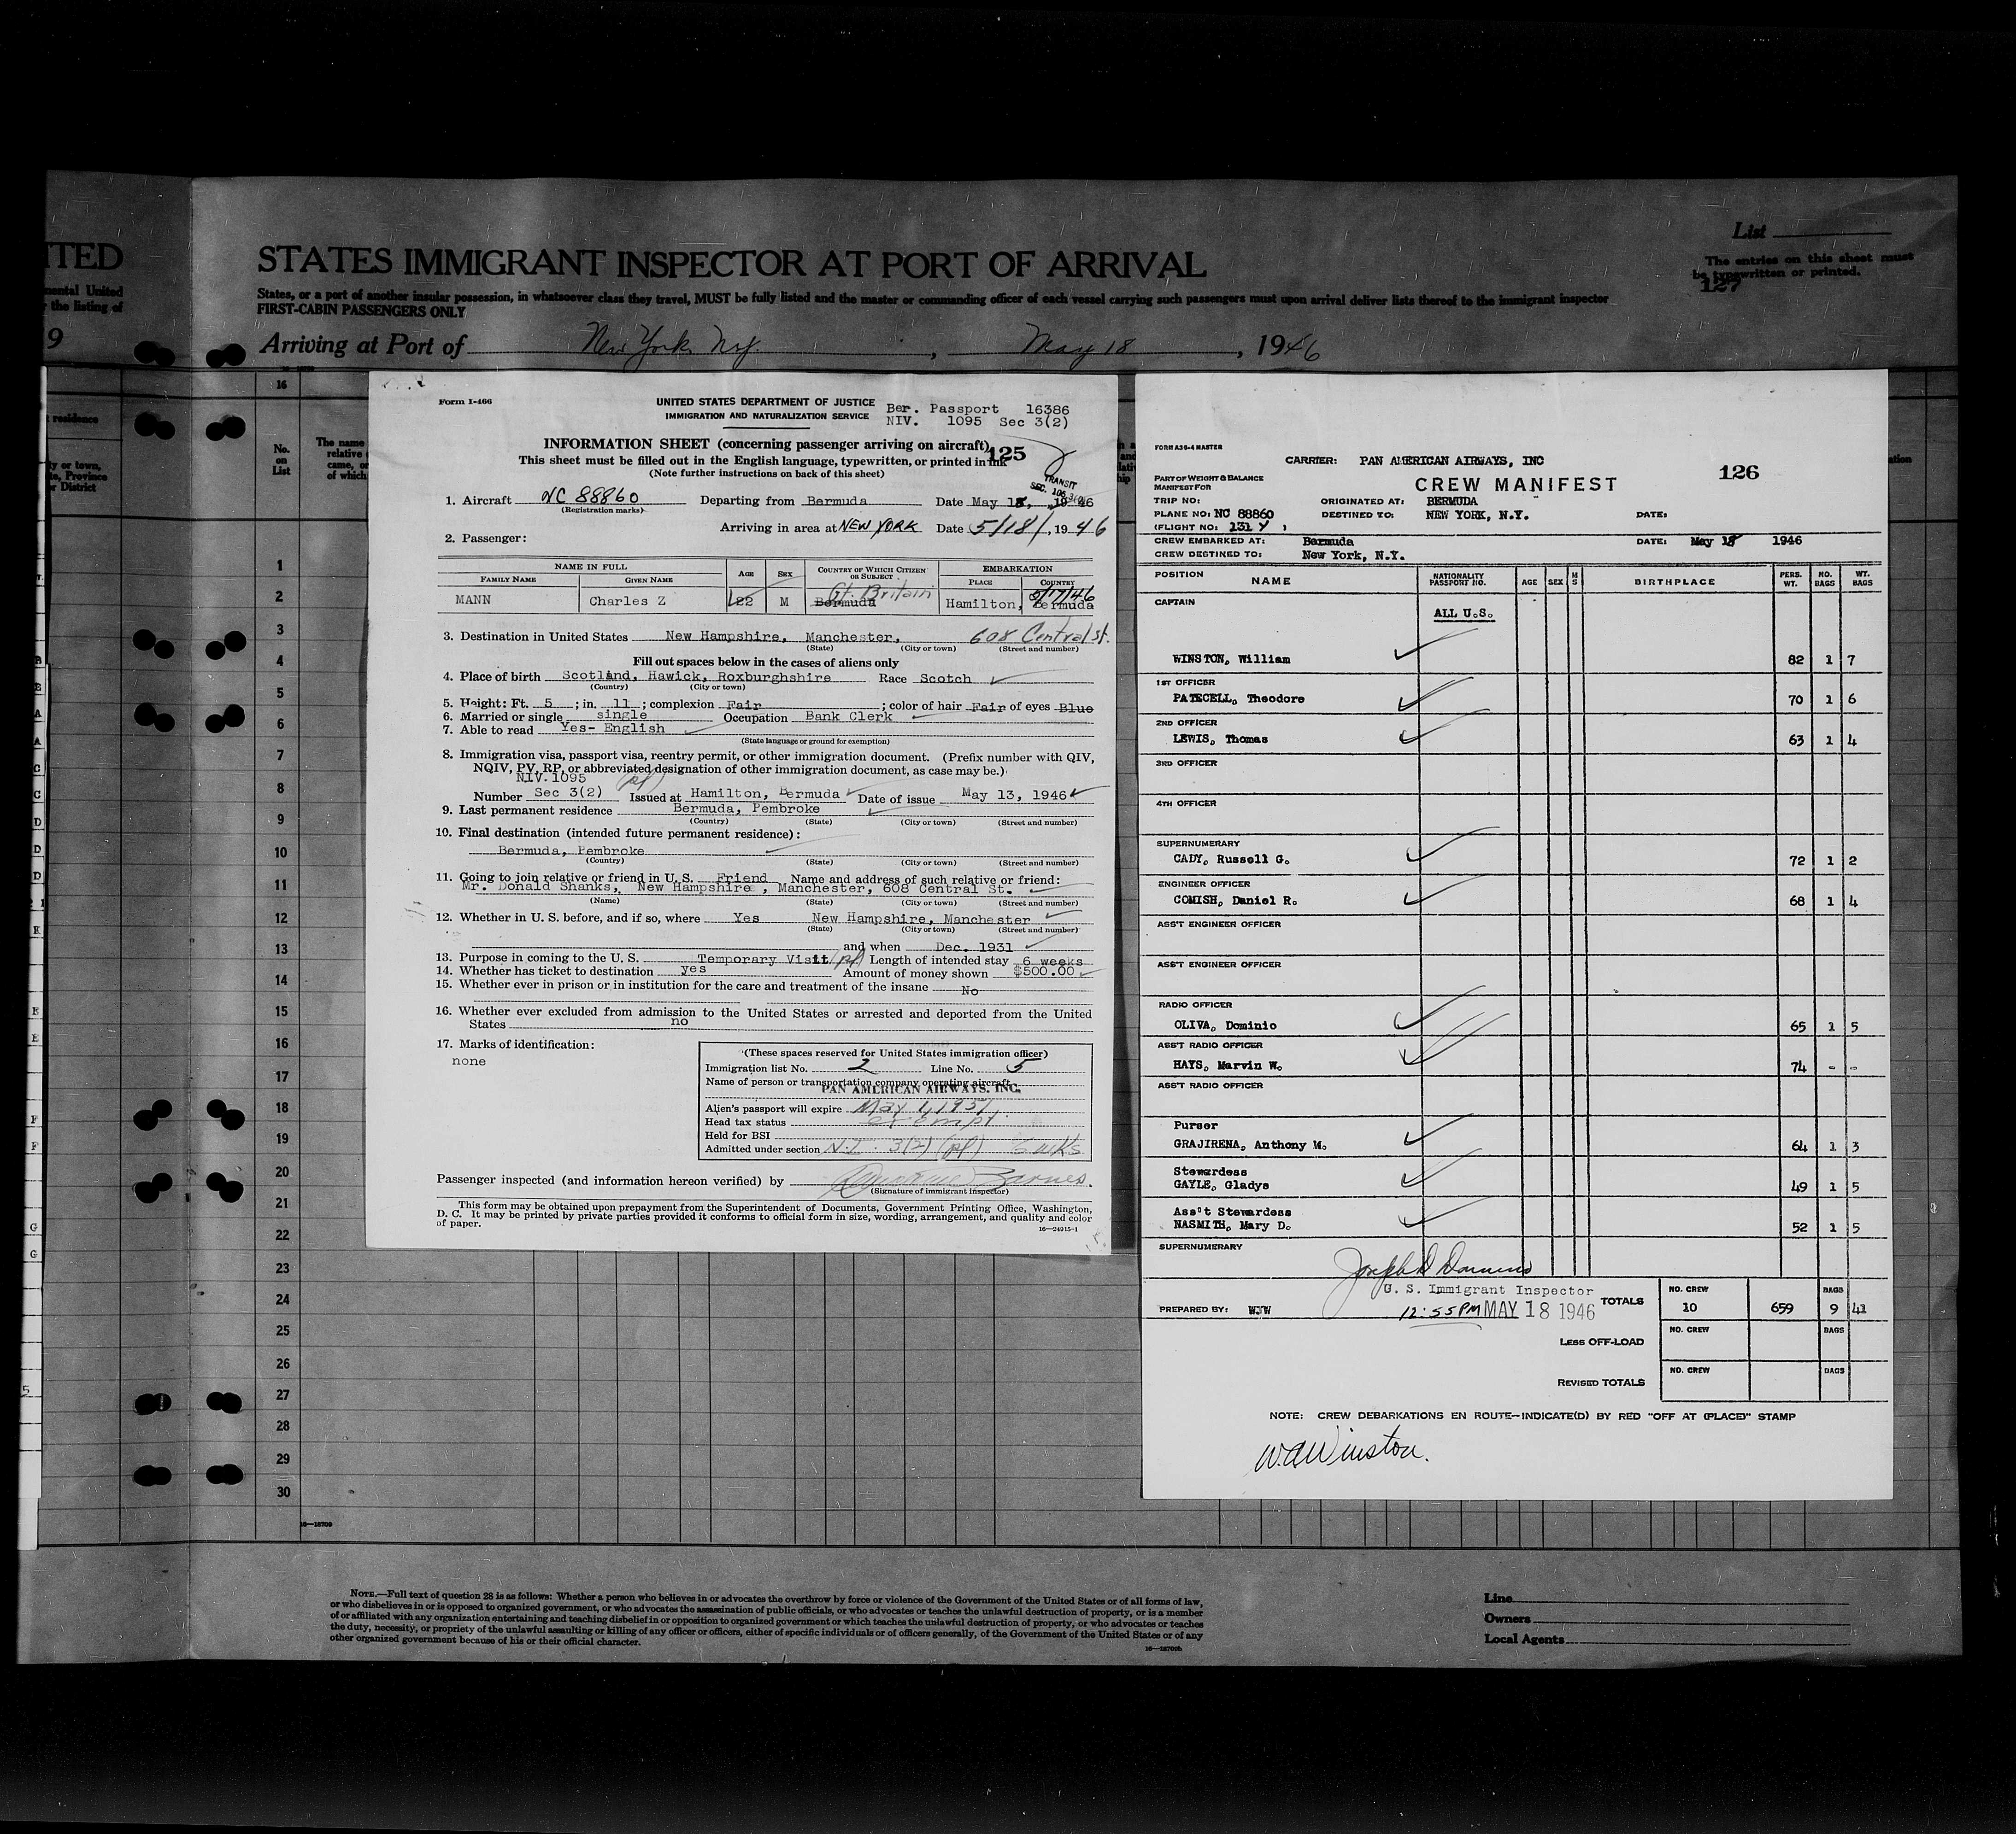 ITED
mental United
the listing of
9
STATES IMMIGRANT INSPECTOR AT PORT OF ARRIVAL
States, or a port of another insular possession, in whatsoever class they travel, MUST be fully listed and the master or commanding officer of each vessel carrying such passengers must upon arrival deliver lists thereof to the immigrant inspector
FIRST-CABIN PASSENGERS ONLY
Arriving at Port of New York N.Y., May 18, 1946
List
The entries on this sheet must
be typewritten or printed.
127
residence
y or town,
te, Province
r District
16
No.
on
List
The name
relative
came, or
of which
1
2
3
4
5
6
7
8
9
10
11
12
13
14
15
16
17
18
19
20
21
22
23
24
25
26
27
28
29
30
Form I-466
UNITED STATES DEPARTMENT OF JUSTICE
IMMIGRATION AND NATURALIZATION SERVICE
Ber. Passport 16386
NIV. 1095 Sec 3(2)
INFORMATION SHEET (concerning passenger arriving on aircraft)
125
This sheet must be filled out in the English language, typewritten, or printed in ink
(Note further instructions on back of this sheet)
TRANSIT
1. Aircraft NC 88860 Departing from Bermuda Date May 18, 1946
(Registration marks)
Arriving in area at NEW YORK Date 5/18/, 1946
2. Passenger:
NAME IN FULL
FAMILY NAME
GIVEN NAME
AGE
SEX
COUNTRY OF WHICH CITIZEN OR SUBJECT
EMBARKATION
PLACE
COUNTRY
Gt. Britain
5/17/46
MANN Charles Z 22 M Bermuda Hamilton, Bermuda
3. Destination in United States New Hampshire, Manchester, 608 Central St.
(State) (City or town) (Street and number)
Fill out spaces below in the cases of aliens only
4. Place of birth Scotland, Hawick, Roxburghshire Race Scotch
(Country) (City or town)
5. Height: Ft. 5 ; in. 11 ; complexion Fair ; color of hair Fair of eyes Blue
6. Married or single single Occupation Bank Clerk
7. Able to read Yes- English
(State language or ground for exemption)
8. Immigration visa, passport visa, reentry permit, or other immigration document. (Prefix number with QIV,
NQIV, PV, RP, or abbreviated designation of other immigration document, as case may be.)
NIV. 1095 (pl)
Number Sec 3(2) Issued at Hamilton, Bermuda Date of issue May 13, 1946
9. Last permanent residence Bermuda, Pembroke
(Country) (State) (City or town) (Street and number)
10. Final destination (intended future permanent residence):
Bermuda, Pembroke
(Country) (State) (City or town) (Street and number)
11. Going to join relative or friend in U. S. Friend Name and address of such relative or friend:
Mr. Donald Shanks, New Hampshire, Manchester, 608 Central St.
(Name) (State) (City or town) (Street and number)
12. Whether in U. S. before, and if so, where Yes New Hampshire, Manchester
(State) (City or town) (Street and number)
and when Dec. 1931
13. Purpose in coming to the U. S. Temporary Visit (pl) Length of intended stay 6 weeks
14. Whether has ticket to destination yes Amount of money shown $500.00
15. Whether ever in prison or in institution for the care and treatment of the insane No
16. Whether ever excluded from admission to the United States or arrested and deported from the United
States no
17. Marks of identification:
none
(These spaces reserved for United States immigration officer)
Immigration list No. 2 Line No. 5
Name of person or transportation company operating aircraft
PAN AMERICAN AIRWAYS, INC.
Alien's passport will expire May 1, 1951
Head tax status exempt
Held for BSI
Admitted under section N.I. 3(2) (pl) 6 wks
Passenger inspected (and information hereon verified) by Barnes.
(Signature of immigrant inspector)
This form may be obtained upon prepayment from the Superintendent of Documents, Government Printing Office, Washington,
D. C. It may be printed by private parties provided it conforms to official form in size, wording, arrangement, and quality and color
of paper.
16—24915-1
FORM A36-4 MASTER
CARRIER: PAN AMERICAN AIRWAYS, INC
126
PART OF WEIGHT & BALANCE
MANIFEST FOR
CREW MANIFEST
TRIP NO: ORIGINATED AT: BERMUDA
PLANE NO: NC 88860 DESTINED TO: NEW YORK, N.Y. DATE:
(FLIGHT NO: 131 Y )
CREW EMBARKED AT: Bermuda DATE: May 18 1946
CREW DESTINED TO: New York, N.Y.
POSITION NAME NATIONALITY PASSPORT NO. AGE SEX M S BIRTHPLACE PERS. WT. NO. BAGS WT. BAGS
CAPTAIN
ALL U.S.
WINSTON, William 82 1 7
1ST OFFICER
PATECELL, Theodore 70 1 6
2ND OFFICER
LEWIS, Thomas 63 1 4
3RD OFFICER
4TH OFFICER
SUPERNUMERARY
CADY, Russell G. 72 1 2
ENGINEER OFFICER
COMISH, Daniel R. 68 1 4
ASS'T ENGINEER OFFICER
ASS'T ENGINEER OFFICER
RADIO OFFICER
OLIVA, Dominio 65 1 5
ASS'T RADIO OFFICER
HAYS, Marvin W. 74 - -
ASS'T RADIO OFFICER
Purser
GRAJIRENA, Anthony M. 64 1 3
Stewardess
GAYLE, Gladys 49 1 5
Ass't Stewardess
NASMITH, Mary D. 52 1 5
SUPERNUMERARY
U. S. Immigrant Inspector
PREPARED BY: WJW 12:55PM MAY 18 1946
TOTALS NO. CREW 10 659 BAGS 9 41
LESS OFF-LOAD NO. CREW BAGS
REVISED TOTALS NO. CREW BAGS
NOTE: CREW DEBARKATIONS EN ROUTE—INDICATE(D) BY RED "OFF AT (PLACE)" STAMP
W.A. Winston.
16—18709
NOTE.—Full text of question 28 is as follows: Whether a person who believes in or advocates the overthrow by force or violence of the Government of the United States or of all forms of law,
or who disbelieves in or is opposed to organized government, or who advocates the assassination of public officials, or who advocates or teaches the unlawful destruction of property, or is a member
of or affiliated with any organization entertaining and teaching disbelief in or opposition to organized government or which teaches the unlawful destruction of property, or who advocates or teaches
the duty, necessity, or propriety of the unlawful assaulting or killing of any officer or officers, either of specific individuals or of officers generally, of the Government of the United States or of any
other organized government because of his or their official character.
16—18709b
Line
Owners
Local Agents